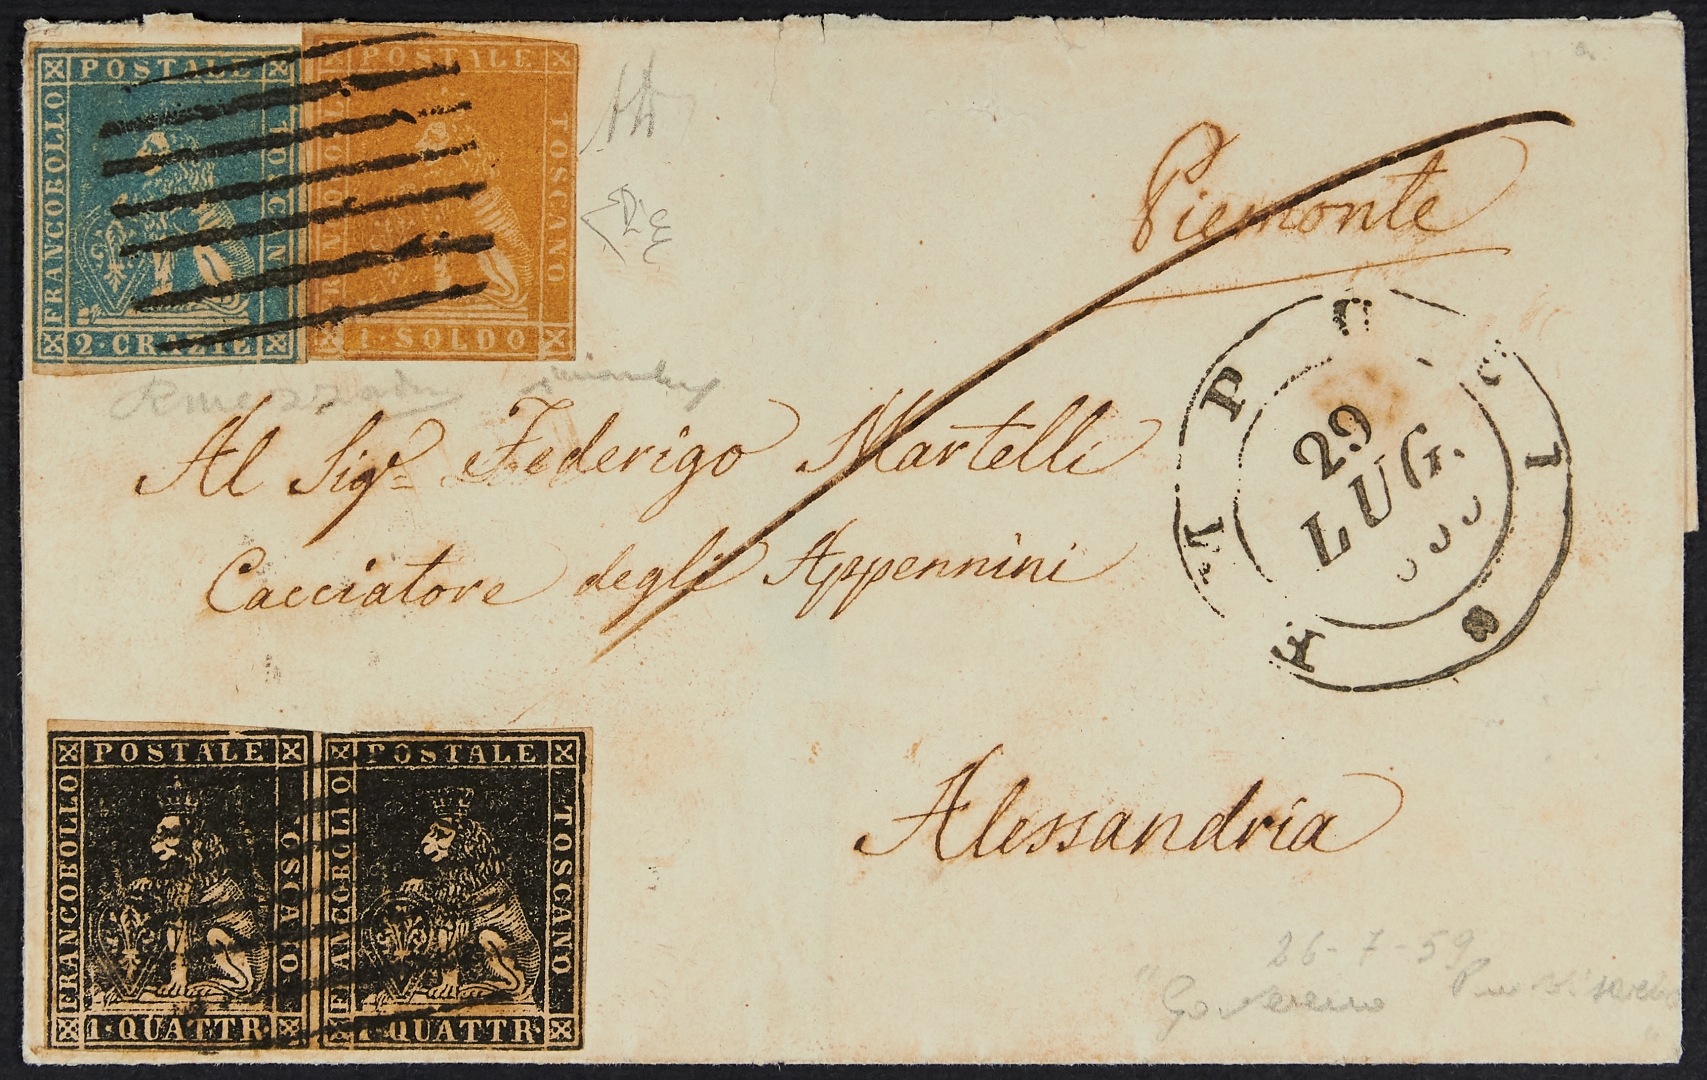 POSTALE
FRANCOBOLLO
TOSCANO
2·CRAZIE
POSTALE
TOSCANO
1·SOLDO
Piemonte
29
LUG.
Al Sigr. Federigo Martelli
Cacciatore degli Appennini
Alessandria
POSTALE
FRANCOBOLLO
TOSCANO
1·QUATTR
POSTALE
FRANCOBOLLO
TOSCANO
1·QUATTR
26-7-59